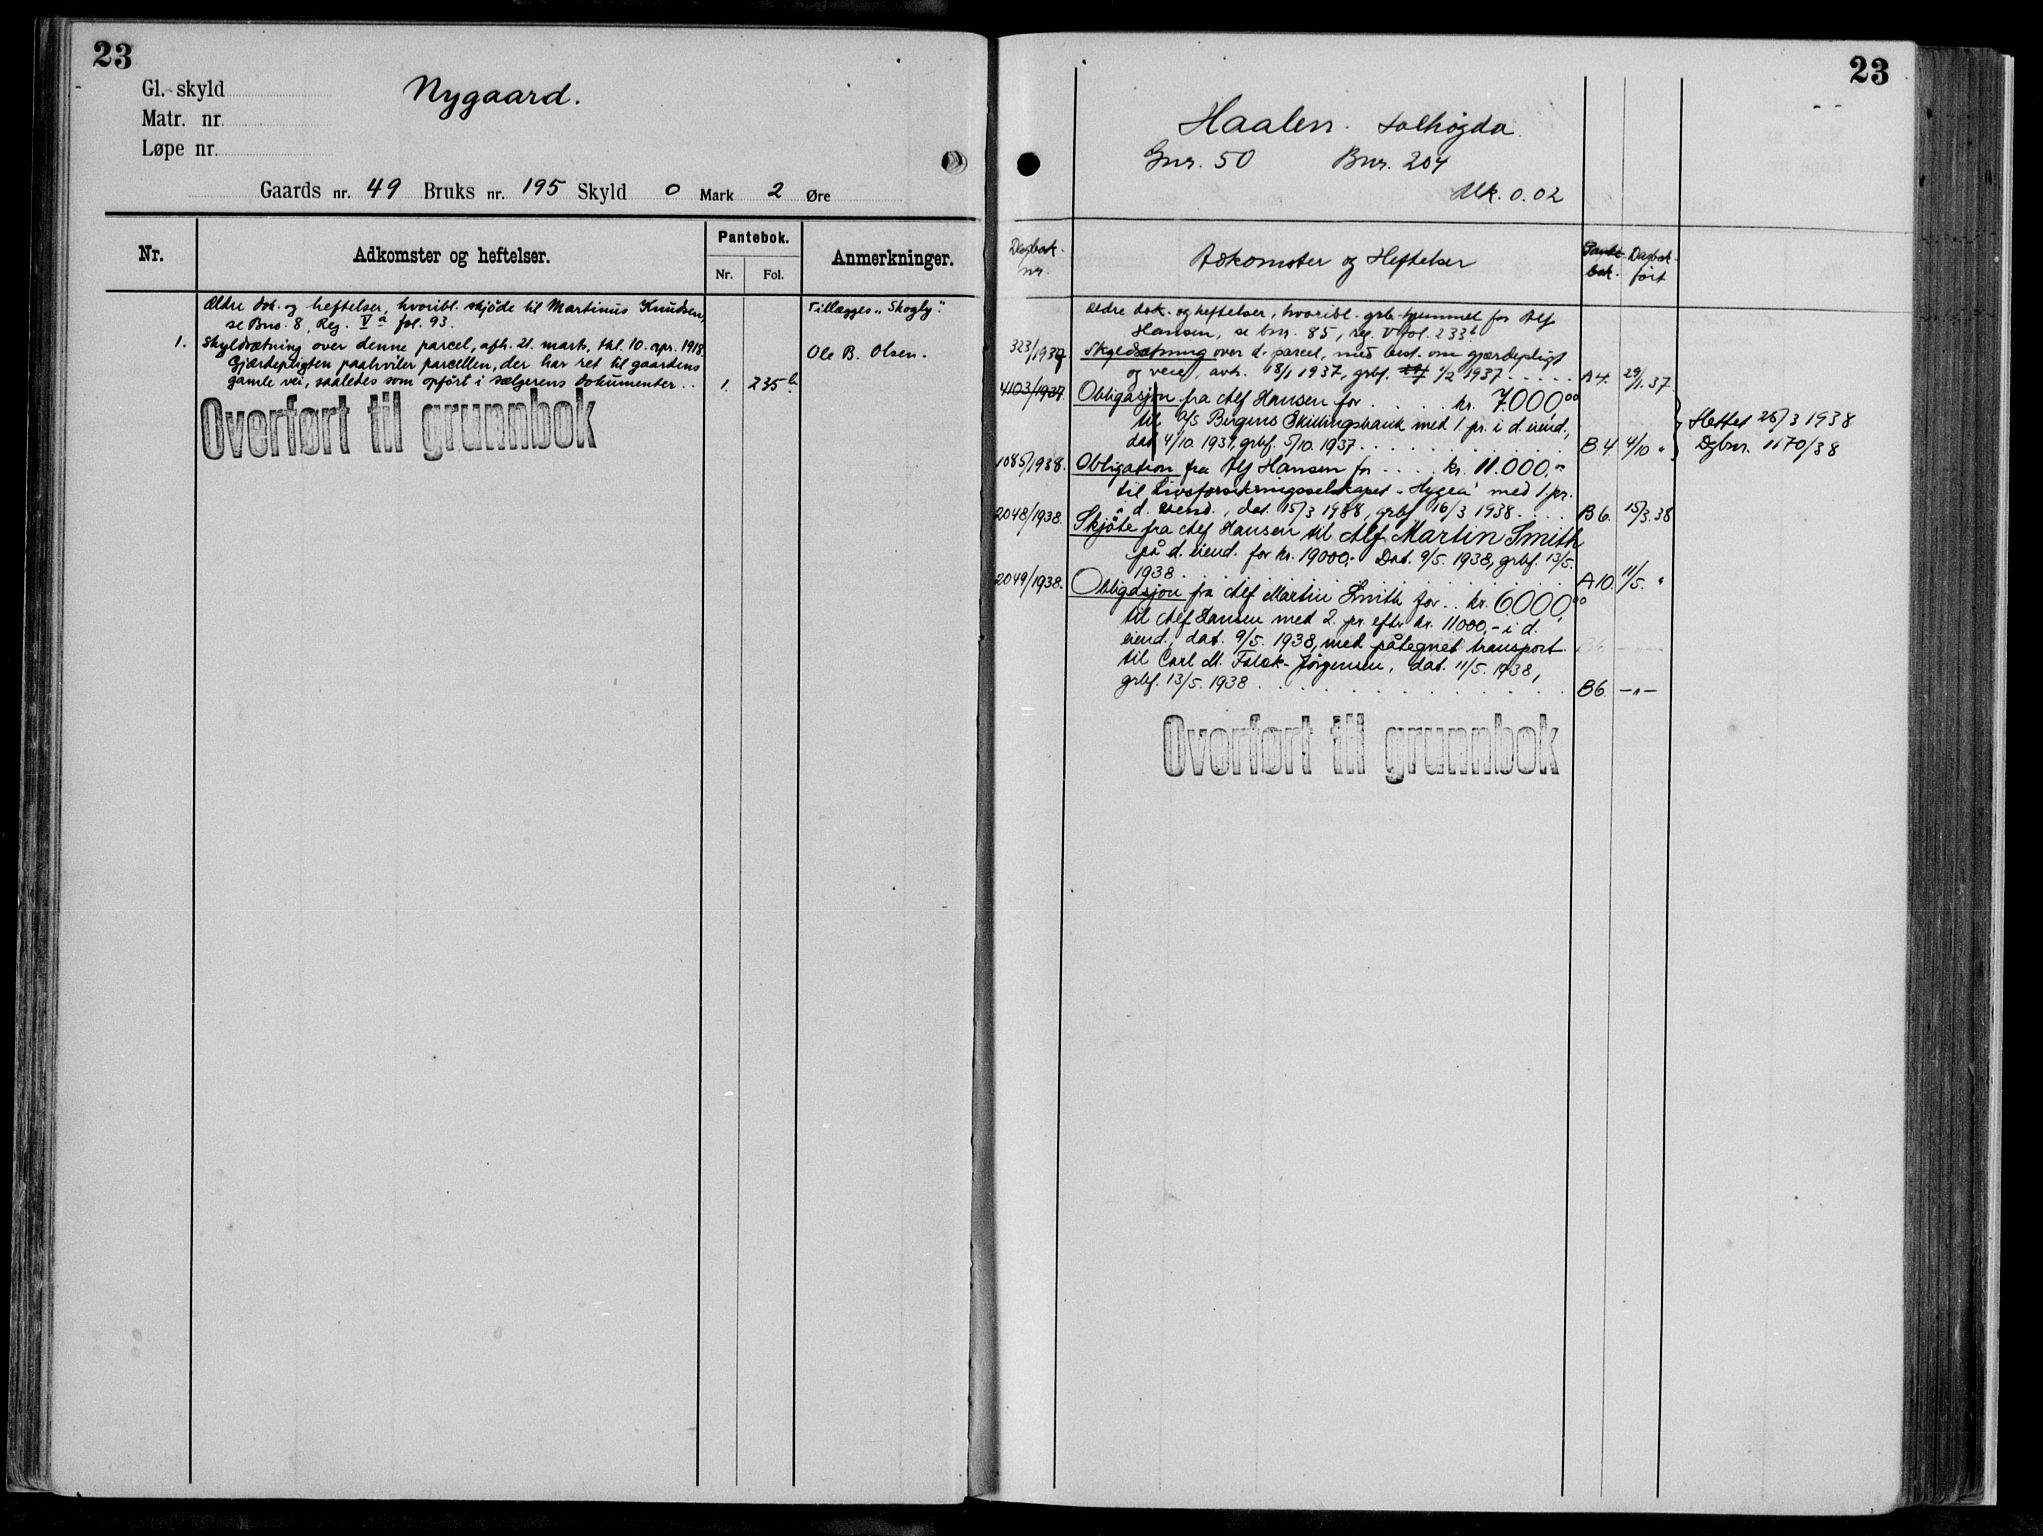 23
Gl. skyld
Nygaard.
Matr. nr.
Løpe nr.
Gaards nr. 49 Bruks nr. 195 Skyld 0 Mark 2 Øre
Nr.
Adkomster og heftelser.
Pantebok.
Nr. Fol.
Anmerkninger.
Ældre dok. og heftelser, hvoribl. skjøde til Martinus Knudsen,
se Bno. 8, Reg. V a fol. 93.
Tillægges "Skogly".
1. Skyldsætning over denne parcel, afh. 21. marts, thl. 10. apr. 1918.
Gjærdepligten paahviler parcellen, der har ret til gaardens
gamle vei, saaledes som opført i sælgerens dokumenter . . 1. 235 b
Ole B. Olsen.
Overført til grunnbok
23
Haalen. Solhøgda
Gnr. 50 Bnr. 204
Mk. 0.02
Dagbok-
nr.
Adkomster og Heftelser
Pante-
bok.
Dagbok-
ført
Ældre dok. og heftelser, hvoribl. grb. hjemmel for Alf
Hansen, se bnr. 85, reg. V fol. 233 b
323/1937 Skyldsætning over d. parcel, med best. om gjærdepligt
og veie, avh. 18/1 1937, grbf. 1/2 1937 . . . . . A 4. 29/1. 37
4103/1937. Obligasjon fra Alf Hansen for . . . . kr. 7000,00
til A/S Bergens Skillingsbank med 1. pr. i d. eiend.,
dat 4/10. 1937, grbf. 5/10. 1937 . . . . . . . B. 4 4/10 "
Slettet 25/3 1938
Dgbnr. 1170/38
1085/1938. Obligation fra Alf Hansen for . . . . kr. 11.000,-
til Livsforsikringsselskapet "Hygea" med 1. pr.
i d. eiend., dat. 15/3 1938, grbf 16/3 1938 . . . . B 6. 15/3. 38
2048/1938. Skjøte fra Alf Hansen til Alf Martin Smith
på d. eiend. for kr. 19000,- Dat. 9/5. 1938, grbf. 13/5.
1938 . . . . . . . . . . A 10. 11/5. "
2049/1938. Obligasjon fra Alf Martin Smith for . . kr. 6000,00
til Alf Hansen med 2. pr. efter kr. 11000,- i d.
eiend., dat. 9/5. 1938, med påtegnet transport
til Carl M. Falck-Jørgensen, dat. 11/5. 1938,
grbf. 13/5. 1938 . . . . . . . . . . B 6. -"-
Overført til grunnbok